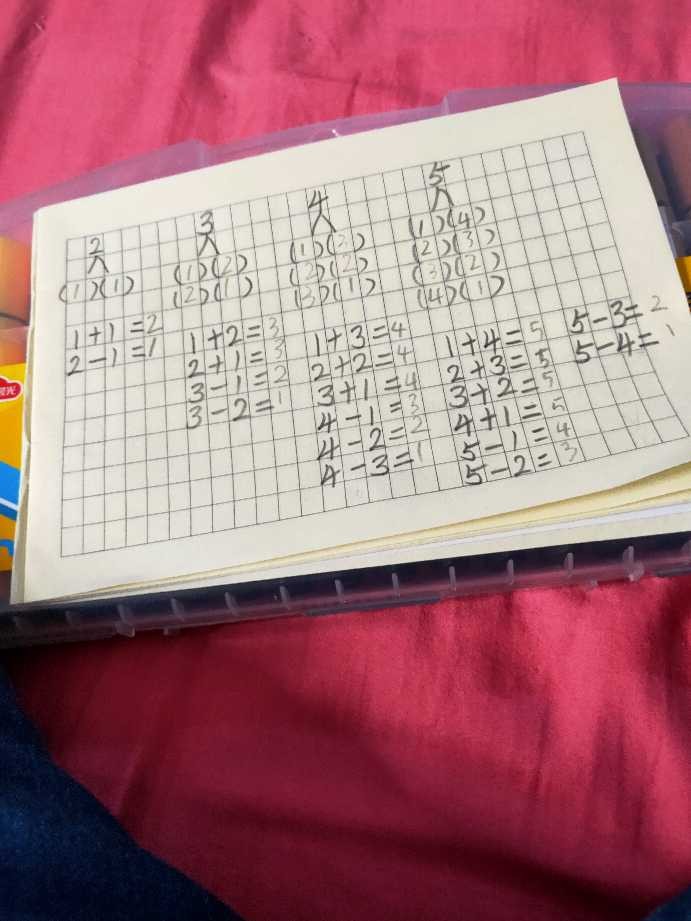 2
(1)(1)
1+1=2
2-1=1
3
(1)(2)
(2)(1)
1+2=3
2+1=3
3-1=2
3-2=1
4
(1)(3)
(2)(2)
(3)(1)
1+3=4
2+2=4
3+1=4
4-1=3
4-2=2
4-3=1
5
(1)(4)
(2)(3)
(3)(2)
(4)(1)
1+4=5
2+3=5
3+2=5
4+1=5
5-1=4
5-2=3
5-3=2
5-4=1